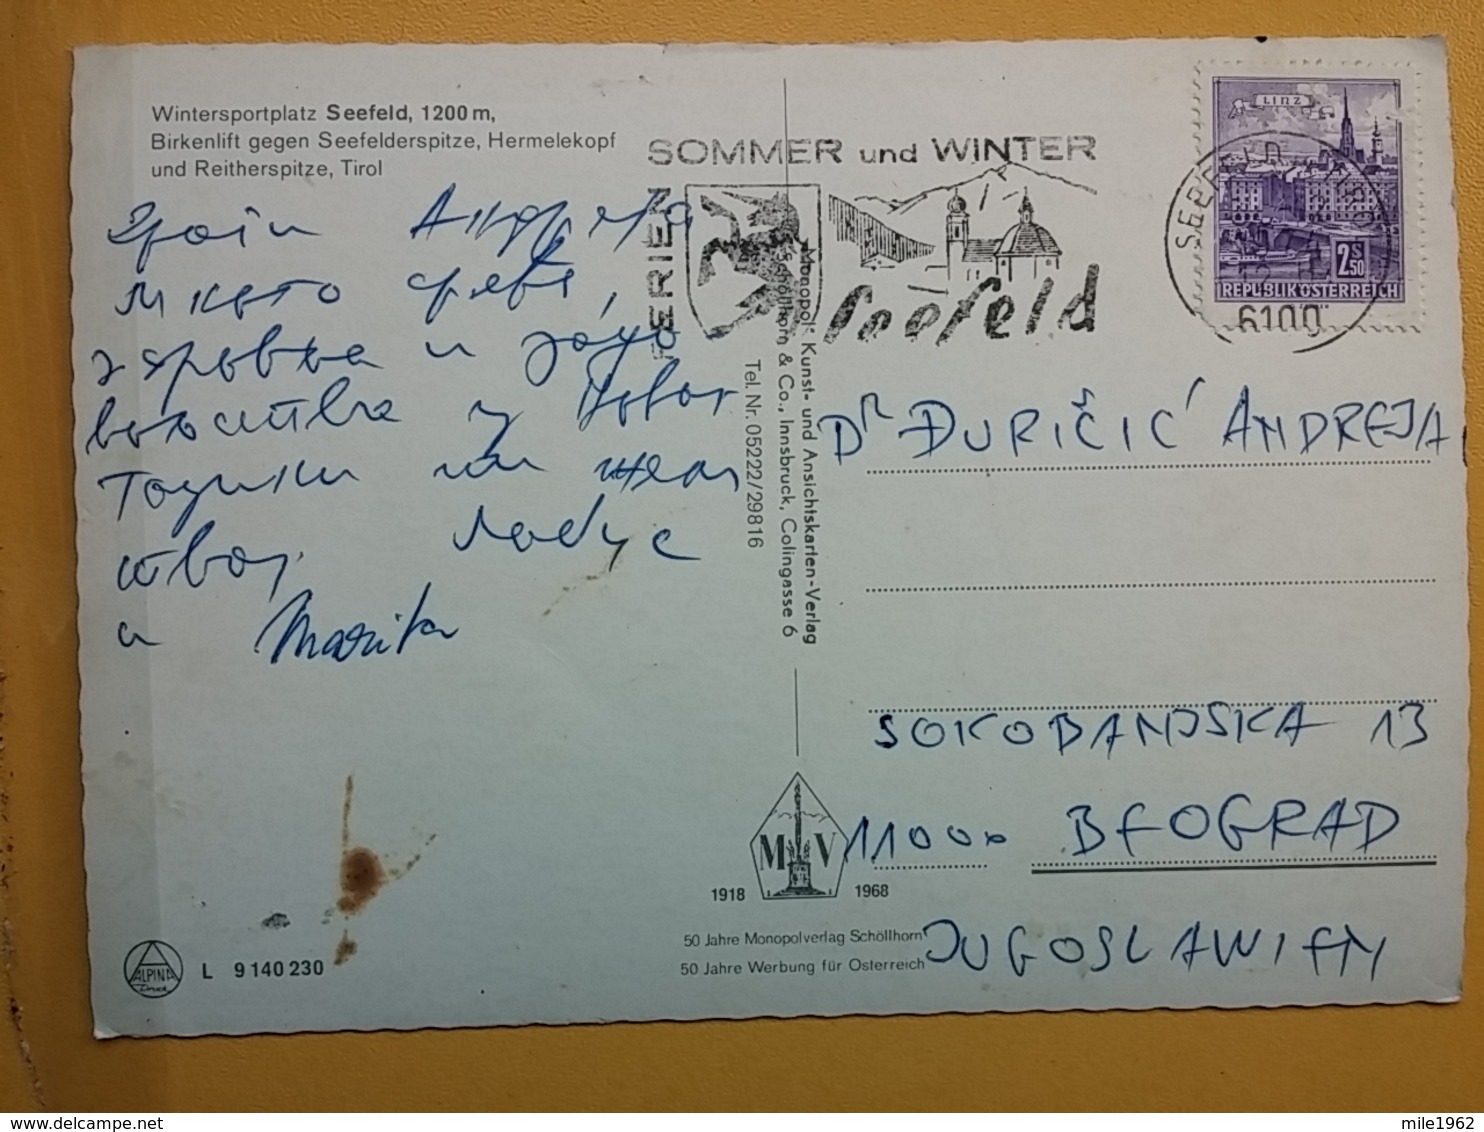 Wintersportplatz Seefeld, 1200 m,
Birkenlift gegen Seefelderspitze, Hermelekopf
und Reitherspitze, Tirol
Драги Андреја
много среће,
здравља и
у Новој
Години
Marita
FERIEN
SOMMER und WINTER
Seefeld
LINZ
2S50
REPUBLIK ÖSTERREICH
SEEFELD
6100
„Monopol“ Kunst- und Ansichtskarten-Verlag
Schöllhorn & Co., Innsbruck, Colingasse 6
Tel. Nr. 05222/29816
DR ĐURIČIĆ ANDREJA
SOKOBANJSKA 13
11000 BEOGRAD
JUGOSLAWIEN
MV
1918 1968
50 Jahre Monopolverlag Schöllhorn
50 Jahre Werbung für Österreich
ALPINA
Druck
L 9 140 230
mile1962